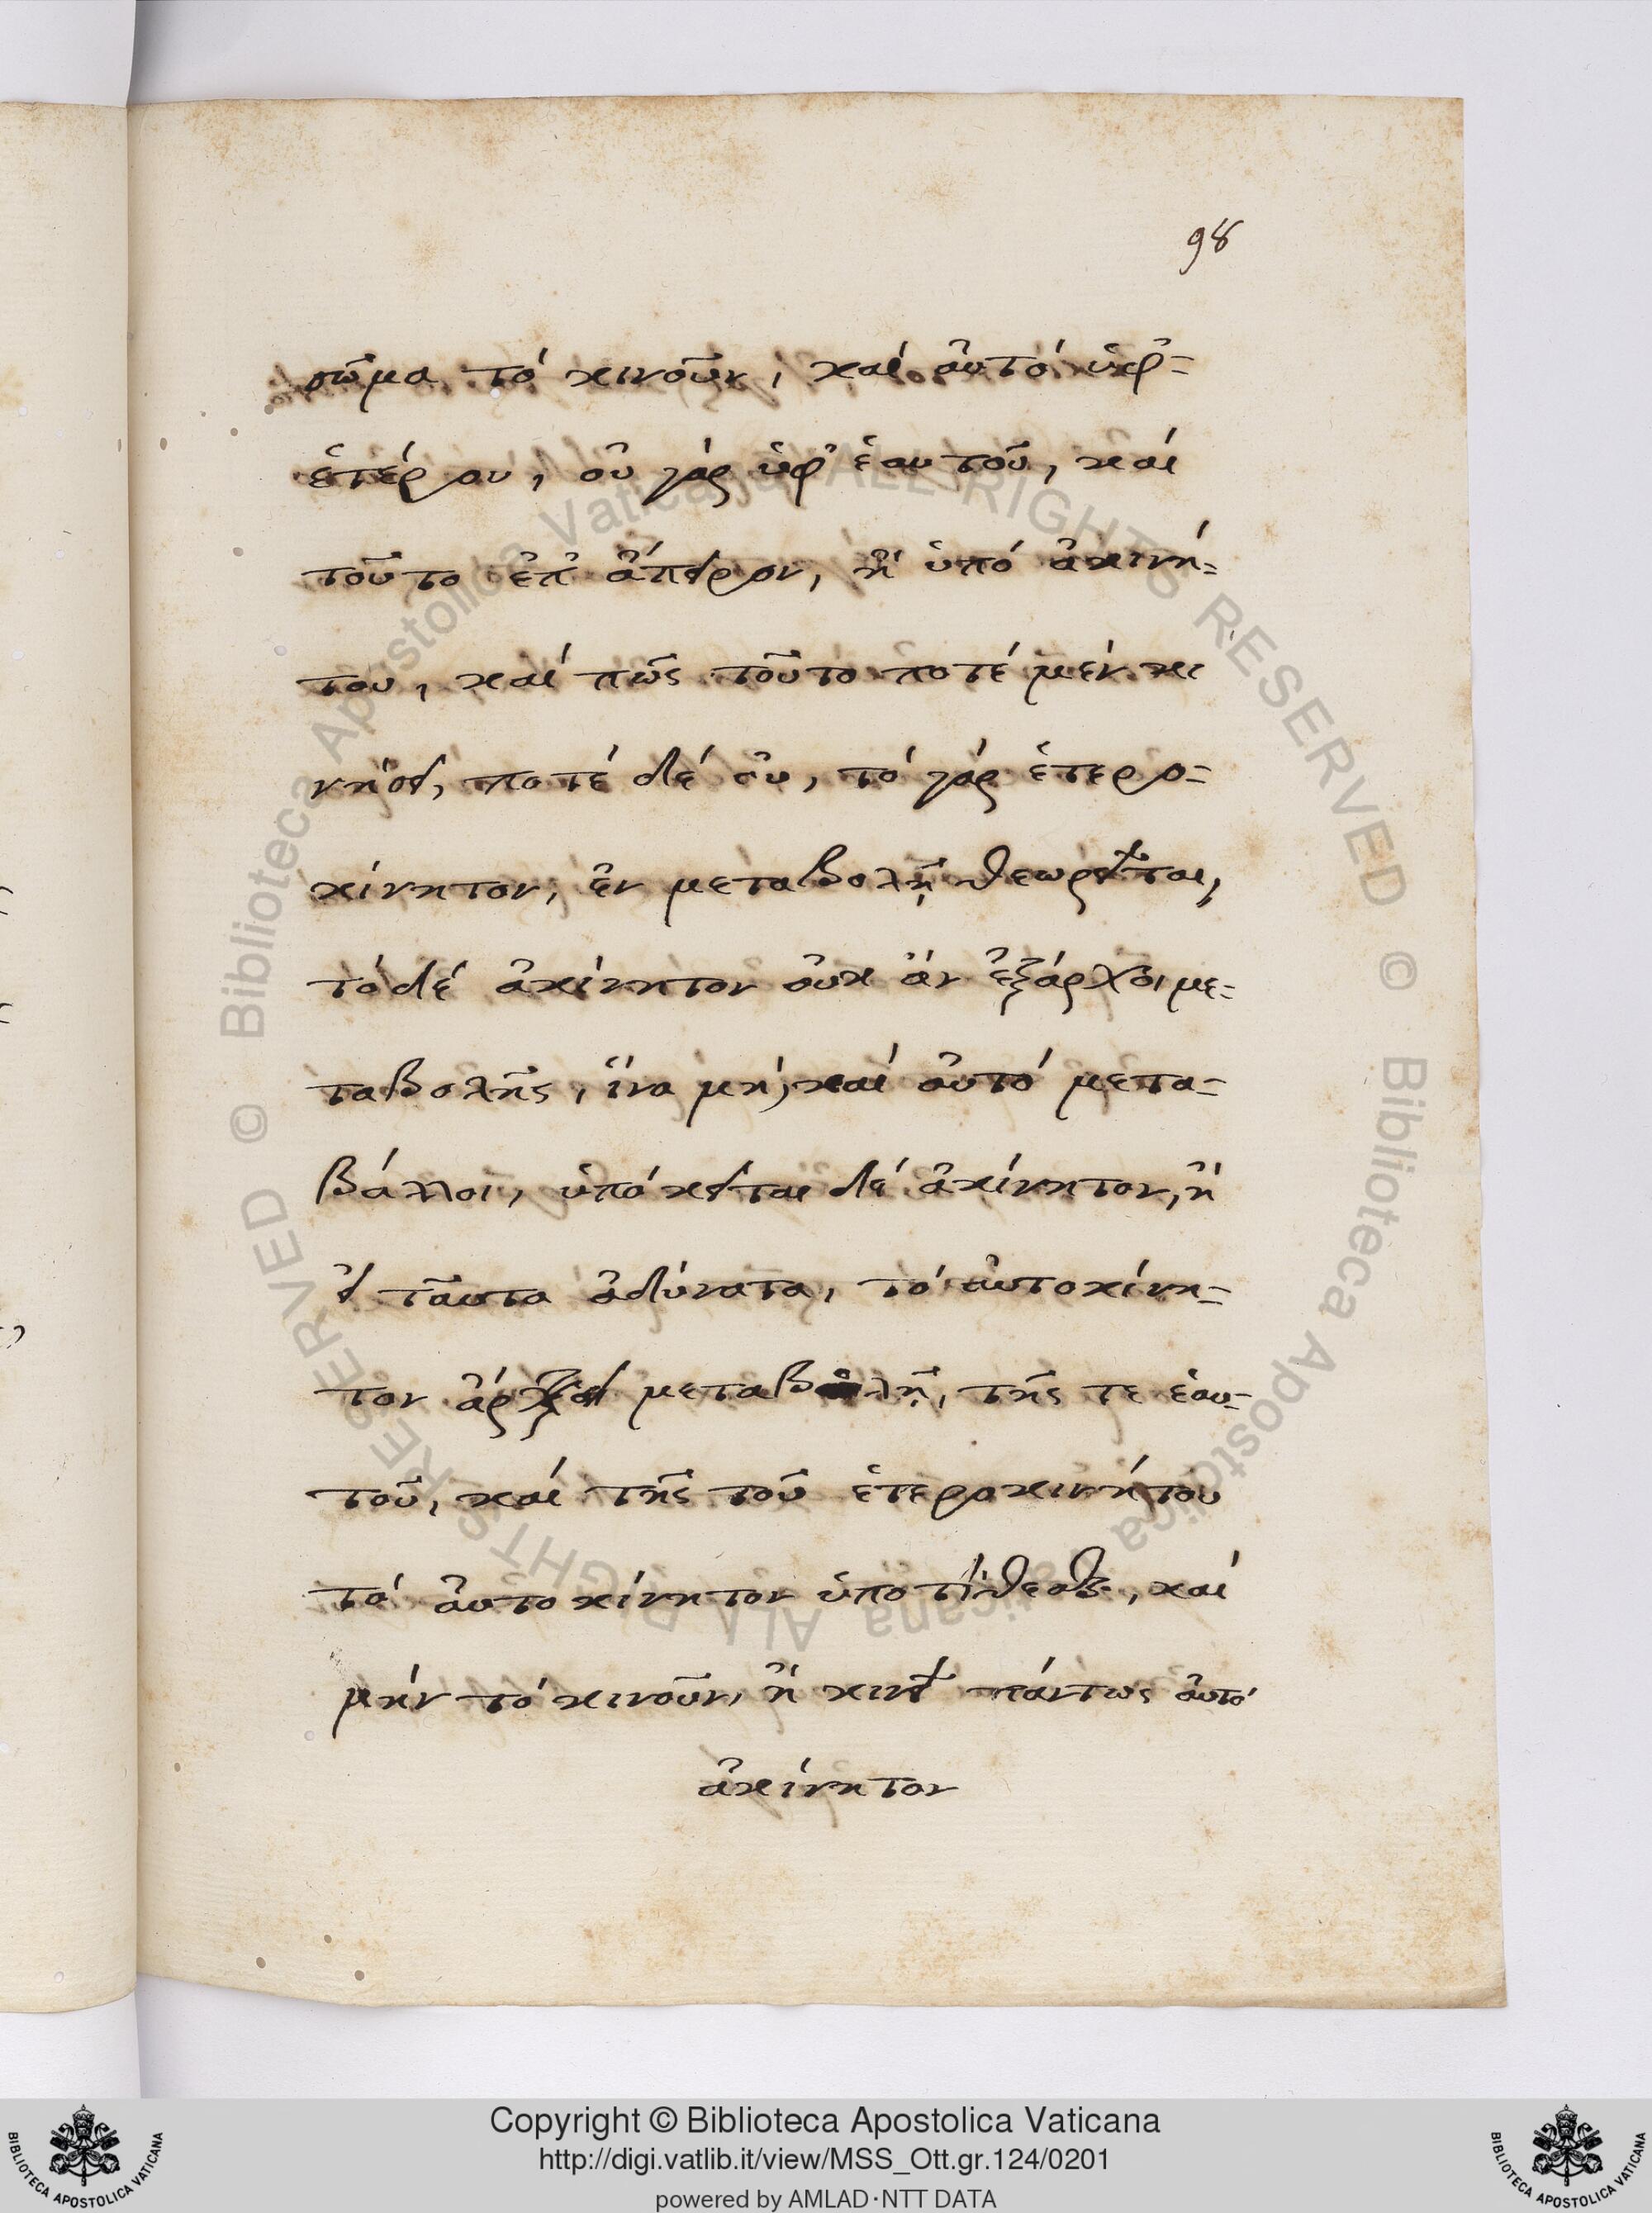 98
σῶμα τό κινοῦν, καί αὐτό ὑφ᾽-
ἑτέρου, οὐ γάρ ὑφ᾽ ἑαυτοῦ, καί
τοῦτο ἐπ᾽ ἄπειρον, ἤ ὑπό ἀκινή-
του, καί πῶς τοῦτο ποτέ μέν κι
νήσει, ποτέ δέ οὐ, τό γάρ ἑτερο-
κίνητον, ἐν μεταβολῇ θεωρεῖται,
τό δέ ἀκίνητον οὐκ ἄν ἐξάρχοι με-
ταβολῆς, ἵνα μή, καί αὐτό μετα-
βάλλοι, ὑπόκειται δέ ἀκίνητον, ἤ
εἰ ταῦτα ἀδύνατα, τό αὐτοκίνη-
τον ἄρχει μεταβολῇ, τῆς τε ἑαυ-
τοῦ, καί τῆς τοῦ ἑτεροκινήτου
τό αὐτοκίνητον ὑποτίθεσθαι, καί
μήν τό κινοῦν, ἤ κινεῖ πάντως αὐτό
ἀκίνητον
© Biblioteca Apostolica Vaticana ALL RIGHTS RESERVED
© Biblioteca Apostolica Vaticana ALL RIGHTS RESERVED
Copyright © Biblioteca Apostolica Vaticana
http://digi.vatlib.it/view/MSS_Ott.gr.124/0201
powered by AMLAD·NTT DATA
BIBLIOTECA APOSTOLICA VATICANA
BIBLIOTECA APOSTOLICA VATICANA